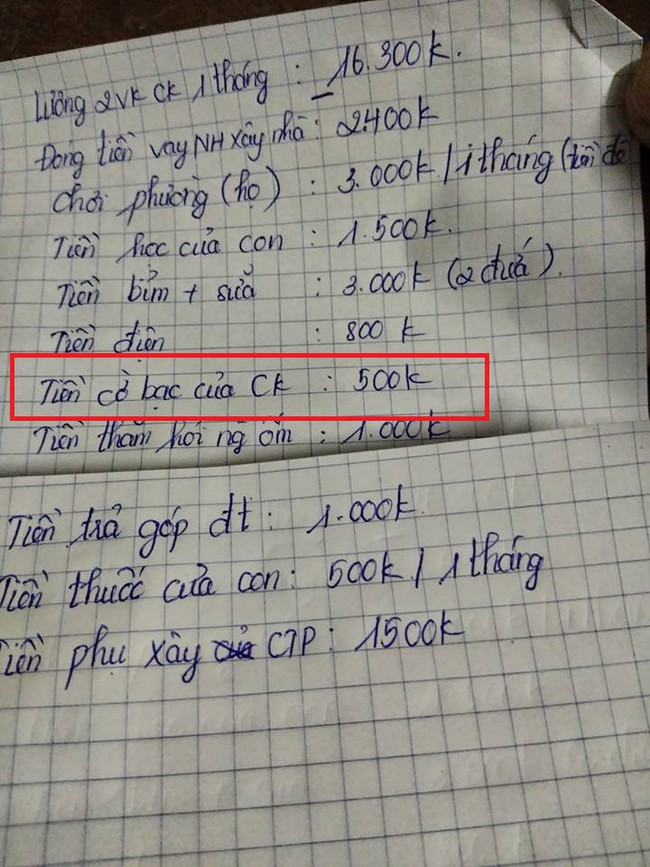 Lương 2VK CK 1 tháng : 16.300k.
Đong tiền vay NH xây nhà : 2.400k
Chơi phường (họ) : 3.000k/1 tháng (tiền đề
Tiền học của con : 1.500k.
Tiền bỉm + sữa : 3.000k (2 đứa).
Tiền điện : 800k
Tiền cờ bạc của Ck : 500k
Tiền thăm hỏi ng ốm : 1.000k
Tiền trả góp đt : 1.000k
Tiền thuốc của con : 500k / 1 tháng
Tiền phụ xây của CTP : 1500k